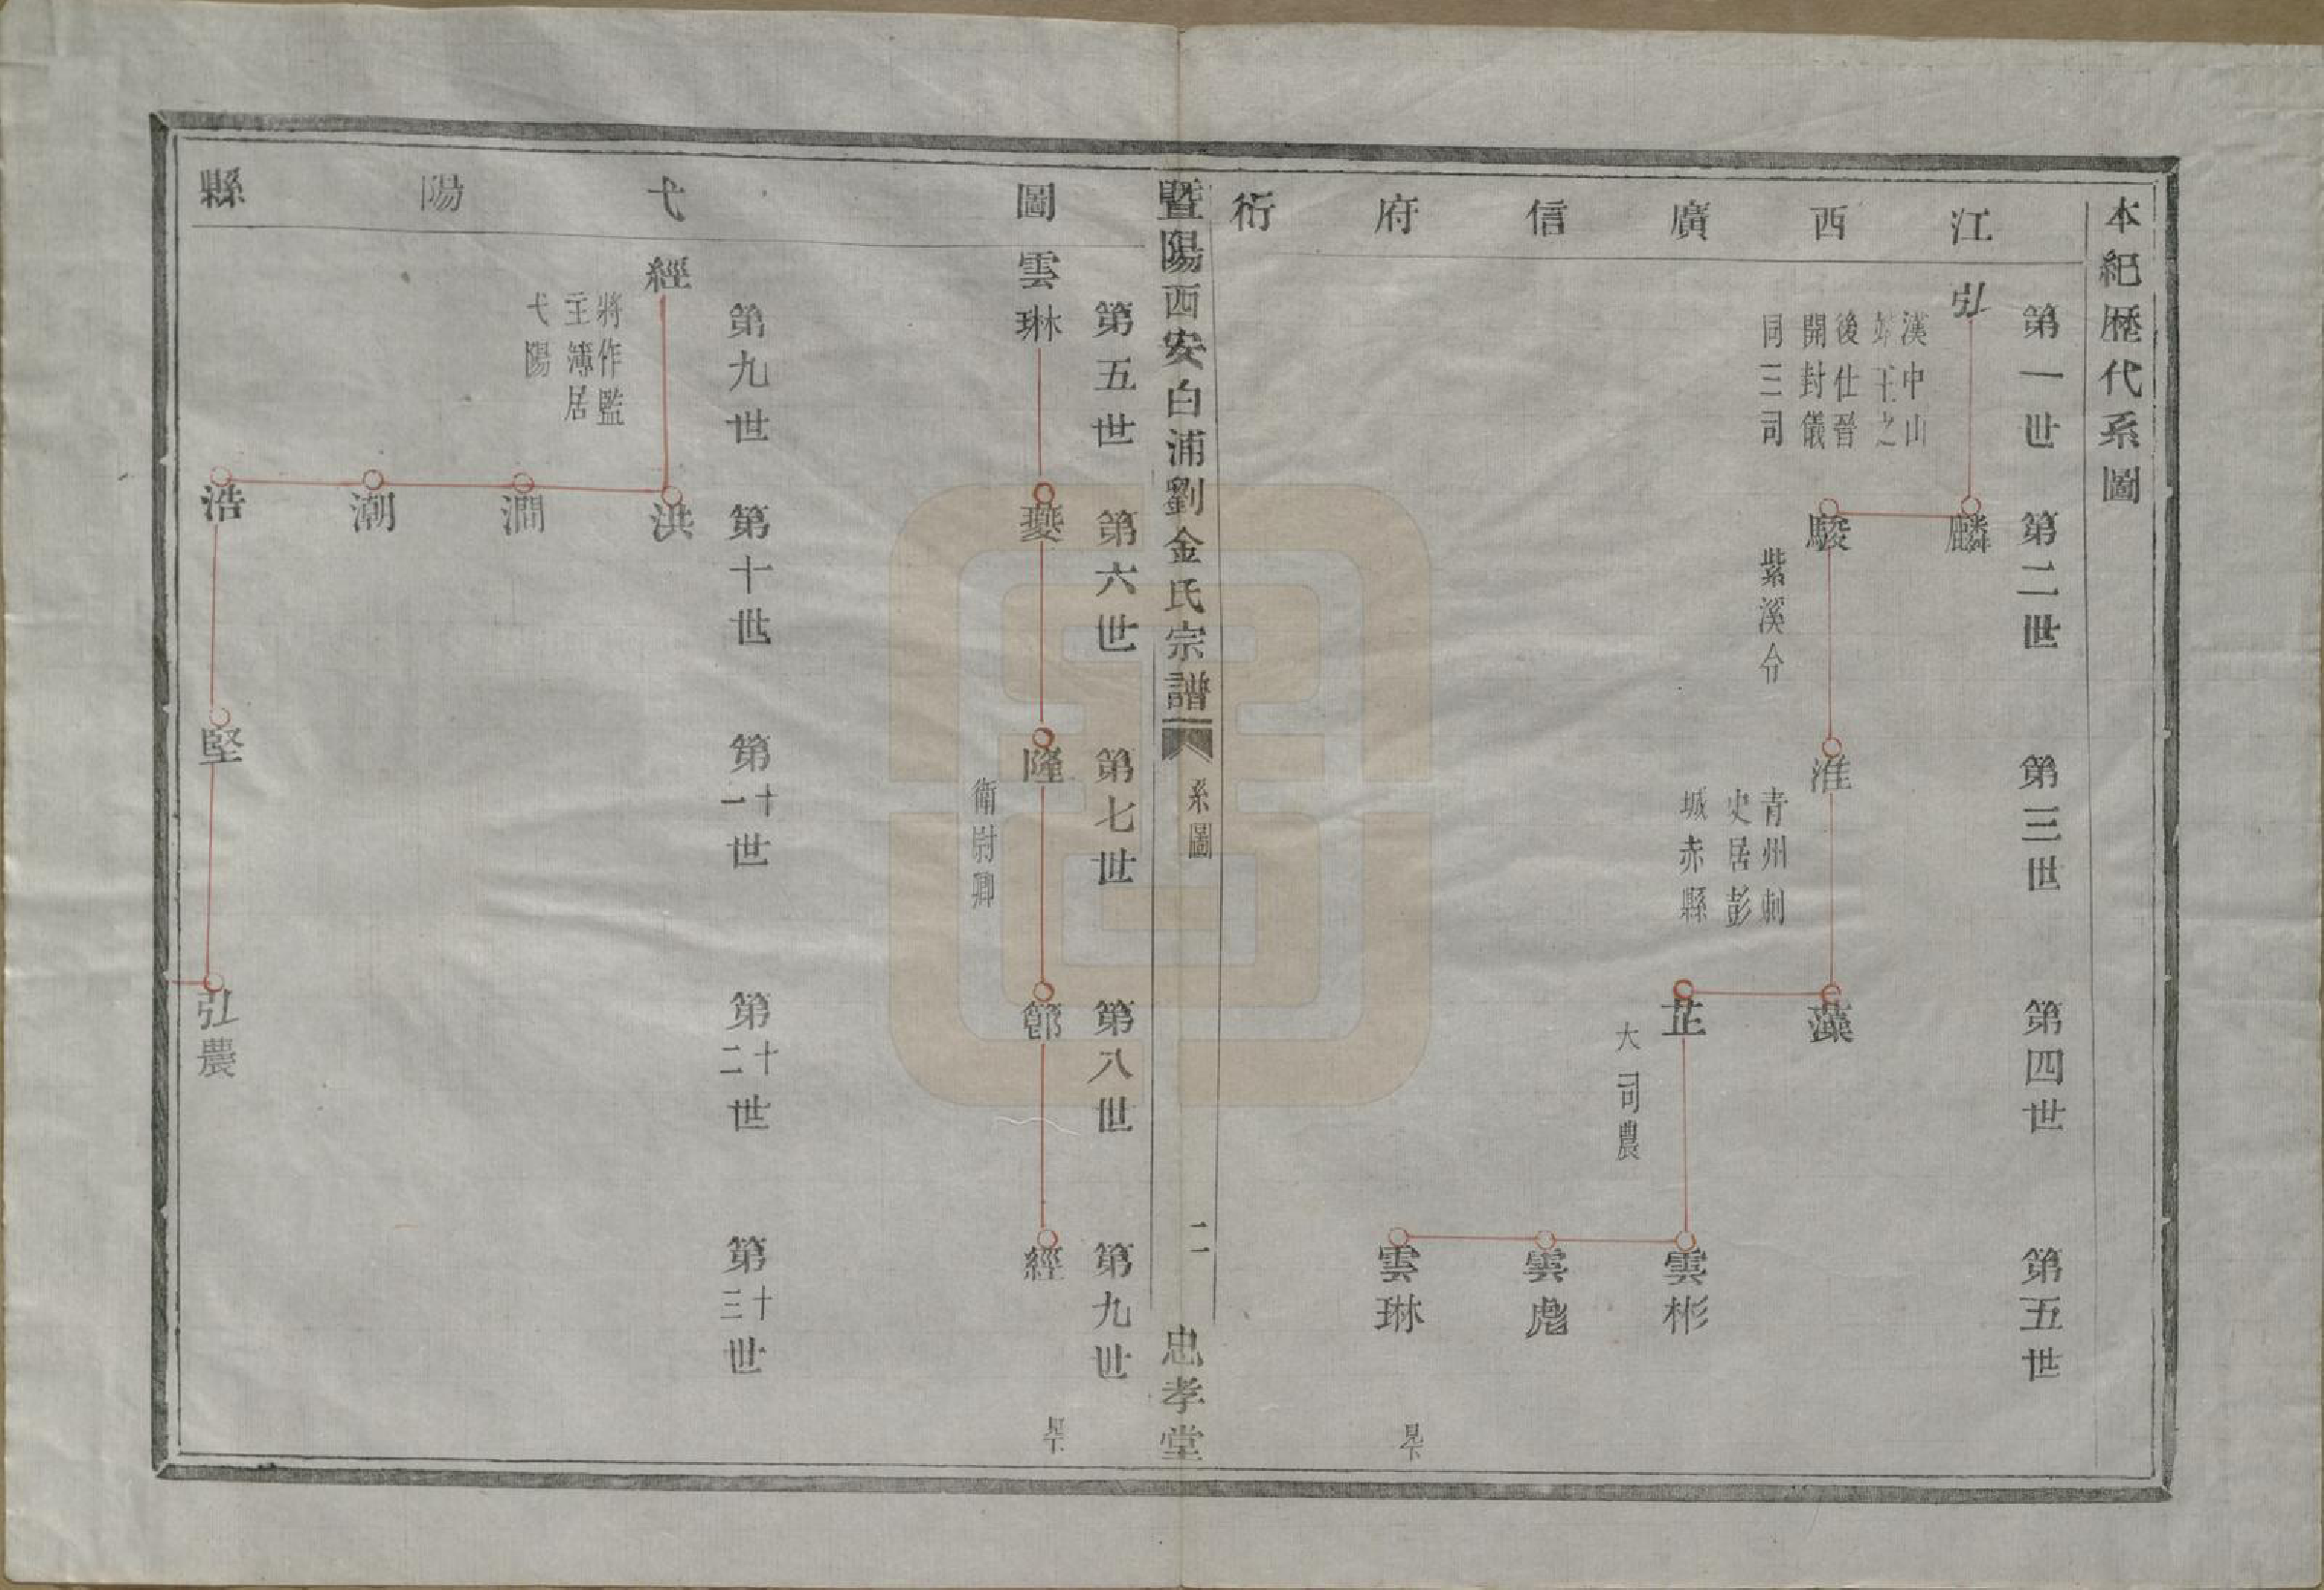 本紀歷代系圖
江西廣信府衍
第一世
弘
漢中山
靖王之
後仕晉
開封儀
同三司
第二世
麟
駿
紫溪分
第三世
淮
青州刺
史居彭
城赤縣
第四世
藻
芷
大司農
第五世
雲彬
雲彪
雲琳
暨陽西安白浦劉金氏宗譜
系圖
二
忠孝堂
圖
第五世
雲琳
第六世
夔
第七世
隆
衛尉卿
第八世
第九世
經
弋陽縣
第九世
經
將作監
主簿居
弋陽
第十世
洪
澗
潮
浩
第十一世
堅
第十二世
弘農
第十三世